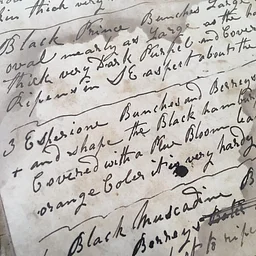 in thick very
Black Prince Bunches Large
oval nearly as Large as the
thick very Dark Purpel and Covere
Ripens in S E aspect about the
3 Esperione Bunches and Berreys
+ and shape the Black hambur
Covered with a Blue Bloom
orange Coler it is very hardy
Black Muscadine B
Berreys
to ripe